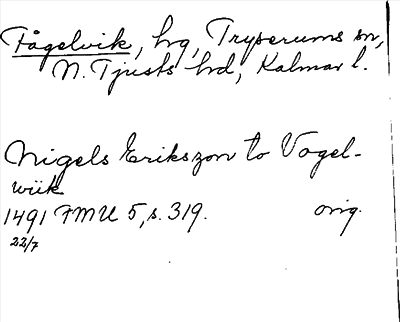 Fågelvik, hg, Tryserums sn,
N. Tjusts hd, Kalmar l.
Nigels Erikszon to Vogel-
wiik
1491 FMU 5, s. 319. orig.
22/7